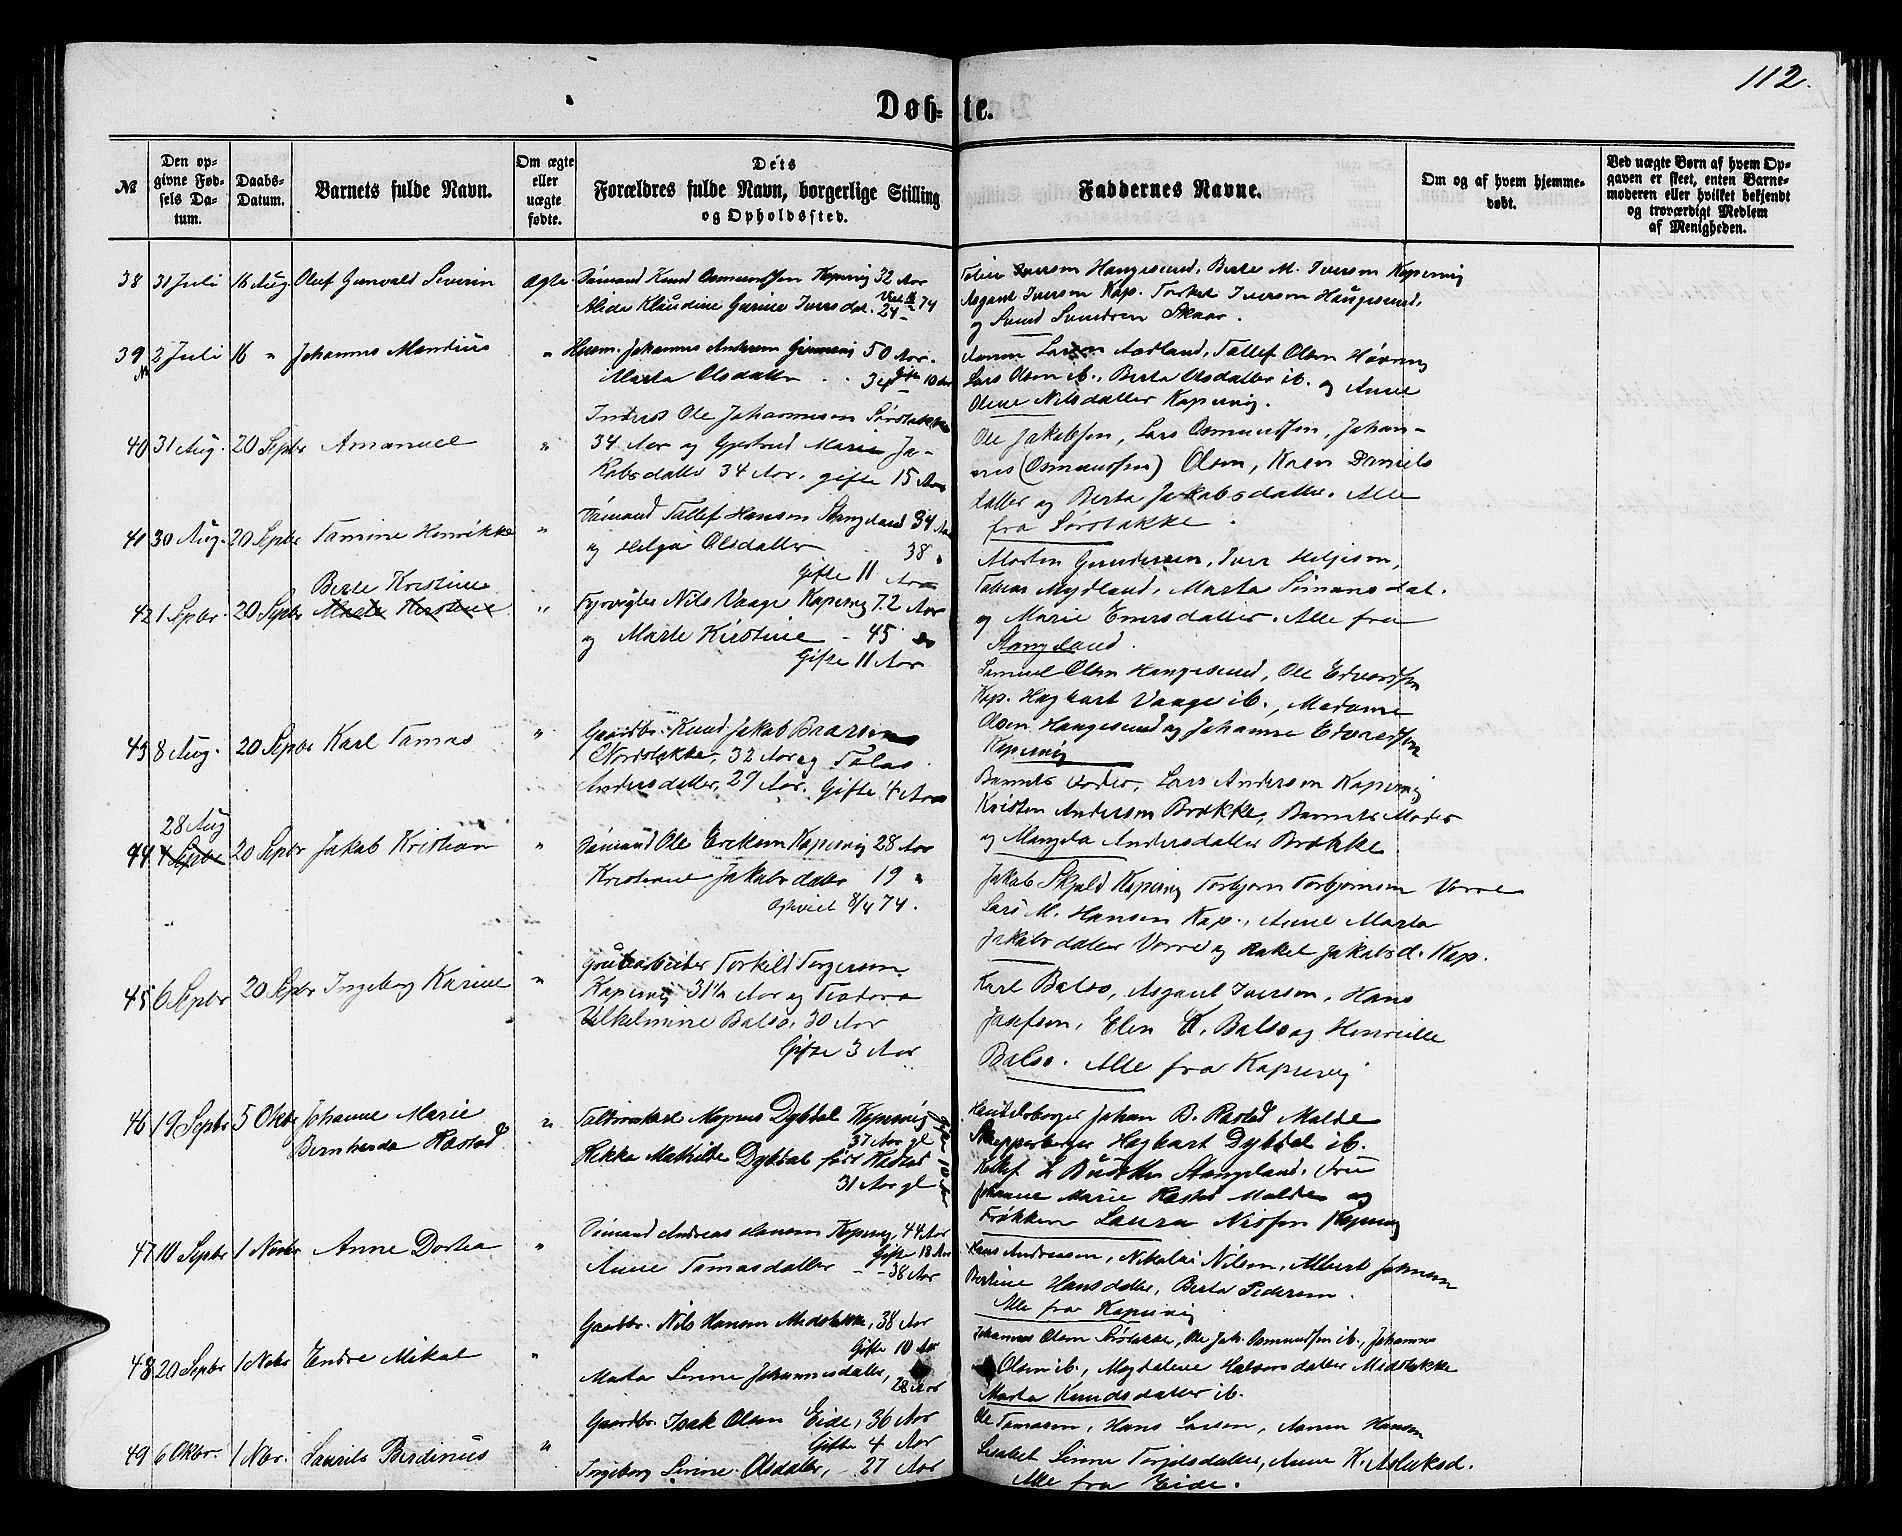 112.
Døb-te.
№
Den op-
givne Fød-
sels Da-
tum.
Daabs-
Datum.
Barnets fulde Navn.
Om ægte
eller
uægte
fødte.
Dets
Forældres fulde Navn, borgerlige Stilling
og Opholdssted.
Faddernes Navne.
Om og af hvem hjemme-
døbt.
Ved uægte Børn af hvem Op-
gaven er skeet, enten Barne-
moderen eller hvilket bekjendt
og troværdigt Medlem
af Menigheden.
38 31 Juli 16 Aug Oluf Gunvald Severin Ægte
Sømand Knud Osmundsen Kopervig 32 Aar
Alida Klaudine Gurine Iversdat. 24
Iverson Haugesund, Berte M. Iverson Kopervig
Asgaut Iverson Kop. Torkel Iverson Haugesund,
og Svend Svendsen Skaar.
39 2 Juli 16 " Johannes Mandius "
Husm. Johannes Andersen 50 Aar.
Marta Olsdatter 34 Gifte 10 Aar
Larsen Aadland, Tollef Olsen
Lars Olsen ib., Berta Olsdatter ib. og Anne
Oline Nilsdatter Kopervig.
40 31 Aug. 20 Sepbr Amanuel "
Inderst Ole Johannesen Sørstokke
34 Aar og Gjertrud Marie Ja-
kobsdatter 34 Aar. gifte 15 Aar
Ole Jakobsen, Lars Osmundsen, Johan-
nes (Osmundsen) Olsen, Karen Daniels
datter og Berta Jakobsdatter. Alle
fra Sørstokke.
41 30 Aug. 20 Sepbr Tamine Henrikke "
Sømand Tollef Hansen Stangeland 34 Aar
og Helga Olsdatter 38 "
Gifte 11 Aar
Morten Gundersen, Iver Helgesen,
Tobias Mydland, Marta Simonsdat.
og Marie Enersdatter. Alle fra
Stangeland.
42 1 Sepbr. 20 Sepbr Berte Kristine
Marte Kirstine "
Fyrvogter Nils Vaage Kopervig 72 Aar
og Marte Kirstine - 45 do
Gifte 11 Aar
Samuel Olsen Haugesund, Ole Edvardsen
Kop. Hagbart Vaage ib., Madame
Olsen Haugesund og Johanne Edvardsen
Kopervig
43 8 Aug. 20 Sepbr Karl Tamas "
Gaardbr. Knud Jakob Baardsen
Nordstokke, 32 Aar og
Andersdatter, 27 Aar. Gifte 4 Aar
Barnets Fader, Lars Andersen Kopervig
Kristen Andersen Brekke, Barnets Moder
og Andersdatter Brekke.
28 Aug
44 4 Sepbr 20 Sepbr Jakob Kristian "
Sømand Ole Ericksen Kopervig 28 Aar
Kristine Jakobsdatter 19 "
8/4 74.
Jakob Skjold Kopervig Torbjørn Torbjørnsen Vorre
Lars M. Hansen Kop., Anne Marta
Jakobsdatter Vorre og Rakel Jakobsd. Kop.
45 6 Sepbr 20 Sepbr Ingeborg Karine "
Torkild Torgersen
Kopervig 31 1/2 Aar og Teodora
Vilhelmine Balso, 30 Aar
Gifte 3 Aar
Karl Balso, Asgaut Iverson, Hans
Josefsen, Elen K. Balso og Henriette
Balso. Alle fra Kopervig
46 19 Sepbr 5 Oktbr Johanne Marie
Bernharda Rastad "
Magnus Dybdal Kopervig
37 Aar gl
Rikka Mathilde Dybdal født Rastad
31 Aar gl
Gifte 10 Aar
Handelsborger Johan B. Rastad Molde
Skipperborger Hagbart Dybdal ib.
Stangeland. Frue
Johanne Marie Rastad Molde og
Frøkken Laura Nissen Kopervig
47 10 Sepbr 1 Novbr Anne Dortea "
Sømand Andreas Hansen Kopervig, 44 Aar
Gifte 18 Aar
Anne Tamasdatter - - 38 Aar
Hans Andreasen, Nikolai Nilsen, Albert Johnsen
Bertine Hansdatter, Berta Pedersen.
Alle fra Kopervig
48 20 Sepbr 1 Nobr Endre Mikal "
Gaardbr. Nils Hansen Midstokke, 38 Aar
Gifte 10 Aar
Marta Serine Johannesdatter, 28 Aar
Johannes Olsen Sørstokke, Ole Jak. Osmundsen ib., Johannes
Olsen ib., Magdalene Halvorsdatter Midstokke
Marta Knudsdatter ib.
49 6 Oktbr. 1 Nbr. Laurits Berdinius "
Gaardbr. Isak Olsen Eide, 36 Aar
Gifte 4 Aar
Ingeborg Serine Olsdatter, 27 Aar
Ole Tamasen, Hans Larsen, Hansen
Lisabet Serine Torjilsdatter, Anne K. Aslaksd.
Alle fra Eide.